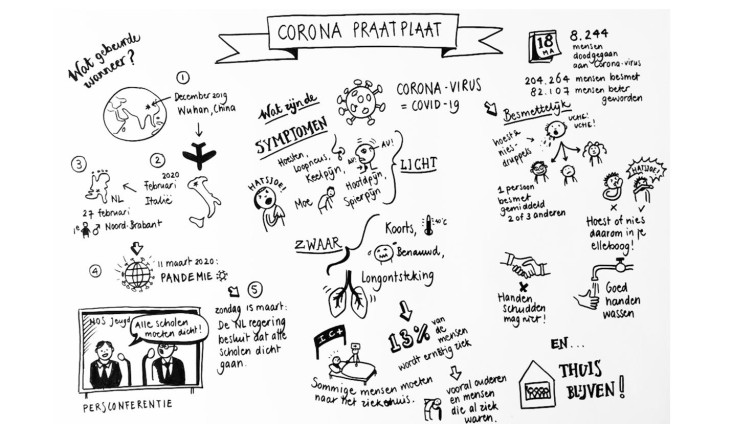 CORONA PRAATPLAAT
Wat gebeurde
wanneer?
1
December 2019
Wuhan, China
2
Februari 2020
Italië
3
NL
27 februari
1e
Noord-Brabant
4
11 maart 2020:
PANDEMIE
5
zondag 15 maart:
De NL regering
besluit dat alle
scholen dicht
gaan.
NOS Jeugd
Alle scholen
moeten dicht!
PERSCONFERENTIE
Wat zijn de
SYMPTOMEN
CORONA-VIRUS
= COVID-19
HATSJOE!
Hoesten,
loopneus,
Keelpijn,
AU!
AU!
Moe
Hoofdpijn,
Spierpijn
LICHT
ZWAAR
Koorts,
Benauwd,
Longontsteking
I C +
Sommige mensen moeten
naar het ziekenhuis.
13% van
de
mensen
wordt ernstig ziek
vooral ouderen
en mensen
die al ziek
waren.
18
MA
8.244
mensen
doodgegaan
aan Corona-virus
204.264 mensen besmet
82.107 mensen beter
geworden
Besmettelijk
hoest &
nies-
druppels
UCHE-
UCHE!
1 persoon
besmet
gemiddeld
2 of 3 anderen
HATSJOE!
Hoest of nies
daarom in je
elleboog!
Handen
schudden
mag niet!
Goed
handen
wassen
EN...
THUIS
BLIJVEN!